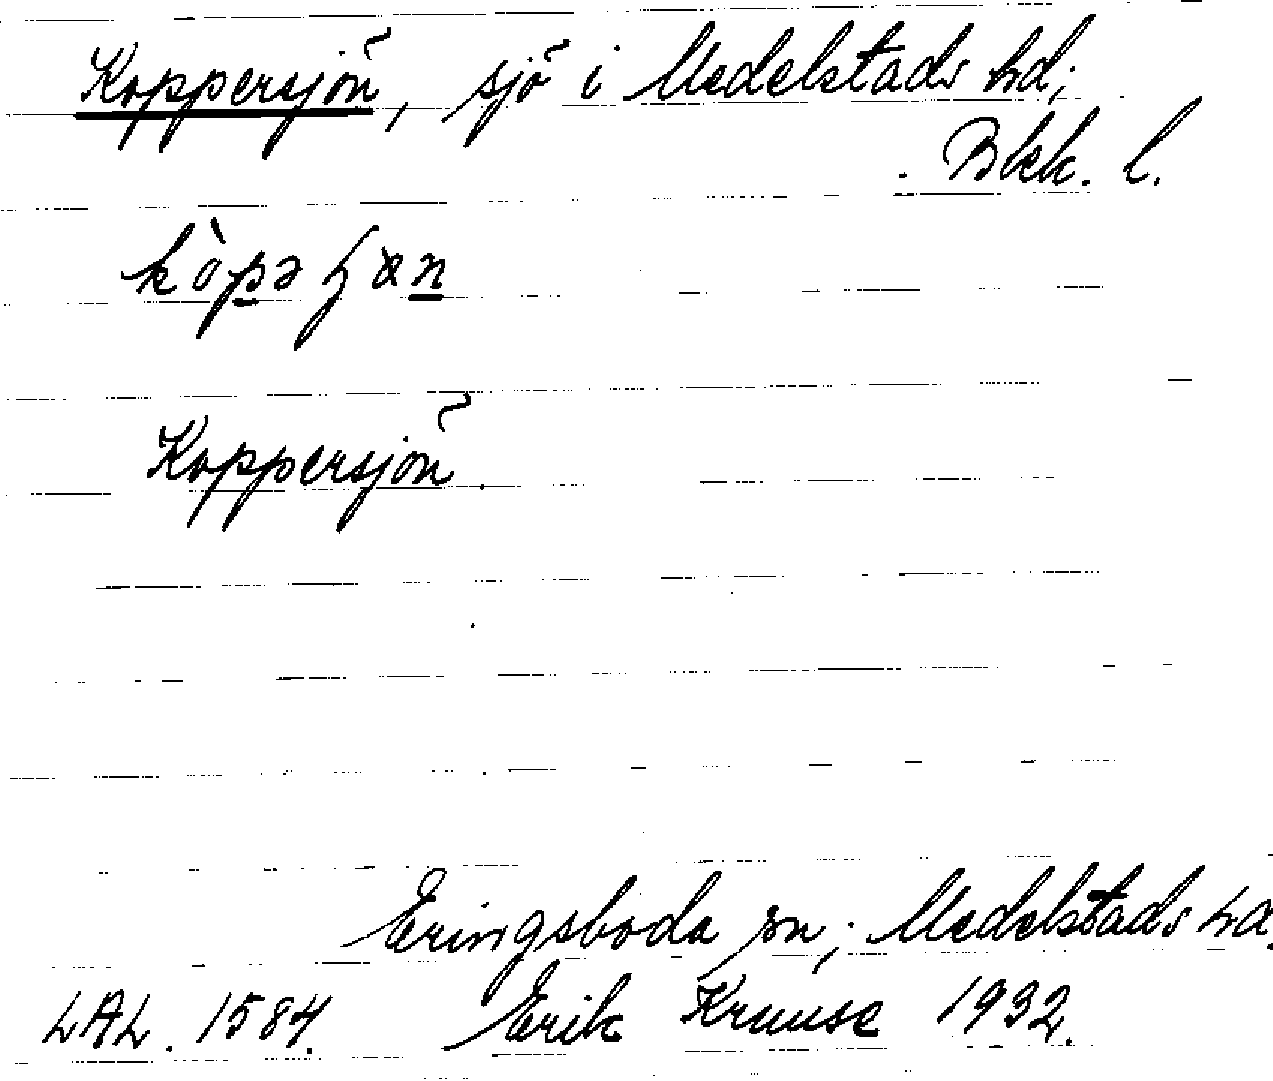 Koppersjön, sjö i Medelstads hd;
Blek. l.
Koppersjön.
Eringsboda sn; Medelstads hd.
LAL. 1584. Erik Kruuse 1932.